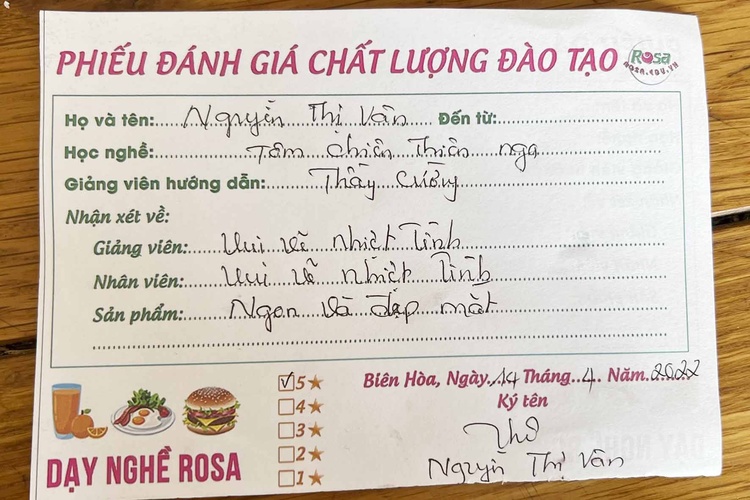 PHIẾU ĐÁNH GIÁ CHẤT LƯỢNG ĐÀO TẠO
Rosa
ROSA.EDU.VN
Họ và tên: Nguyễn Thị Vân Đến từ:
Học nghề: Tôm chiên thiên nga
Giảng viên hướng dẫn: Thầy Cường
Nhận xét về:
Giảng viên: Vui vẽ nhiệt tình
Nhân viên: Vui vẽ nhiệt tình
Sản phẩm: Ngon và đẹp mắt
5★
4★
3★
2★
1★
Biên Hòa, Ngày 14 Tháng 4 Năm 2022
Ký tên
Nguyễn Thị Vân
DẠY NGHỀ ROSA